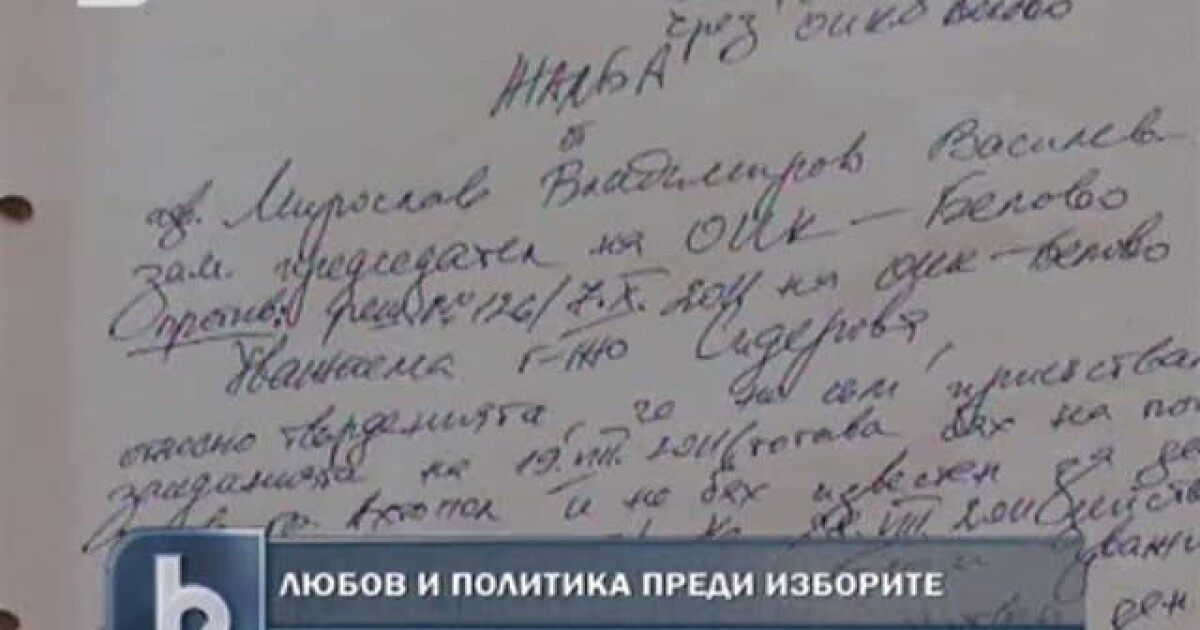 чрез ОИК Белово
ЖАЛБА
от
адв. Мирослав Владимиров Василев
зам. председател на ОИК - Белово
Против: реш. № 126/7.X.2011 на ОИК - Белово
Уважаема г-жо Сидерова,
относно твърденията, че не съм присъствал
заседанията на 19.VIII.2011 (тогава бях на
Ахтопол и не бях известен за
VIII.2011
ден
b
ЛЮБОВ И ПОЛИТИКА ПРЕДИ ИЗБОРИТЕ